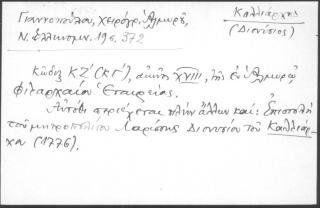 Γιαννοπούλου, Χειρόγρ. Ἁλμυροῦ,
Ν. Ἑλληνομν. 19ς. 372
Καλλιάρχης
(Διονύσιος)
Κῶδιξ ΚΖ΄ (ΚΓ΄), αἰῶνος XVIII, τῆς ἐν Ἁλμυρῷ
Φιλαρχαίου Ἑταιρείας.
Αὐτόθι περιέχεται πλὴν ἄλλων καί: Ἐπιστολὴ
τοῦ μητροπολίτου Λαρίσης Διονυσίου τοῦ Καλλιάρ-
χου (1775).